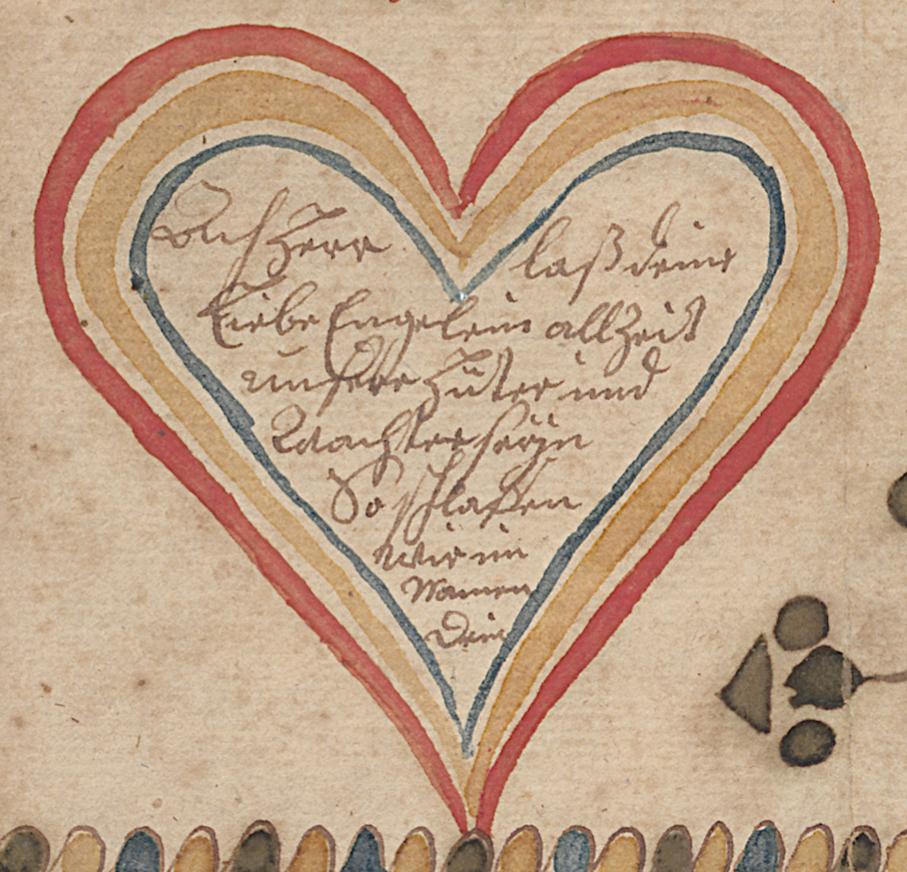 Ach Herr laß deine
Liebe Engelein allzeit
unsere Hüter und
Wachter seÿn
So schlafen
wir im
Namen
Dein